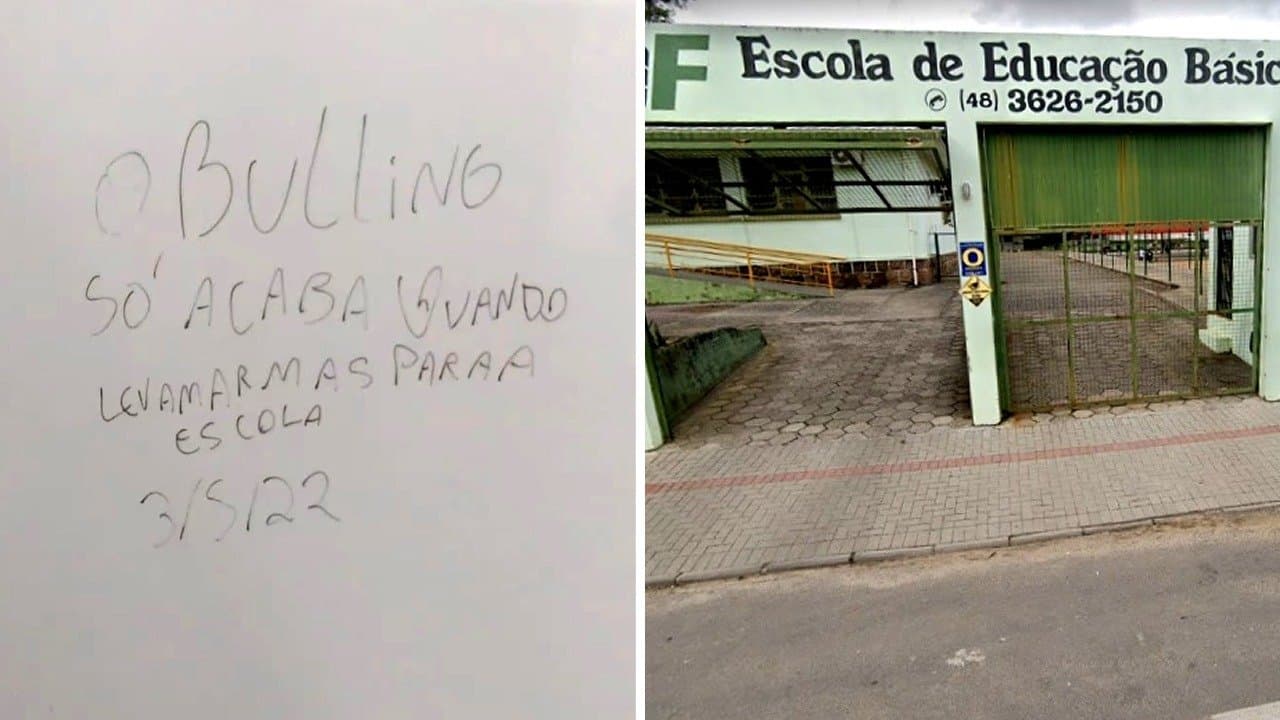 O BULLiNG
SÓ ACABA QUANDO
LEVAMARMAS PARAA
ESCOLA
3/5/22
F Escola de Educação Básic
(48) 3626-2150